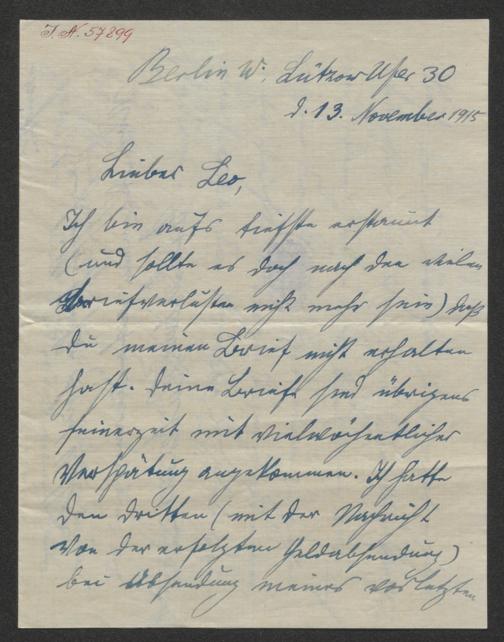 I. N. 57899
Berlin W., Lützow Ufer 30
d. 13. November 1915
Lieber Leo,
Ich bin aufs tiefste erstaunt
(und sollte es doch nach den vielen
Briefverlusten nicht mehr sein) daß
du meinen Brief nicht erhalten
hast. Deine Briefe sind übrigens
seinerzeit mit vielwöchentlicher
Verspätung angekommen. Ich hatte
den dritten (mit der Nachricht
von der erfolgten Geldabsendung)
bei Absendung meines vorletzten